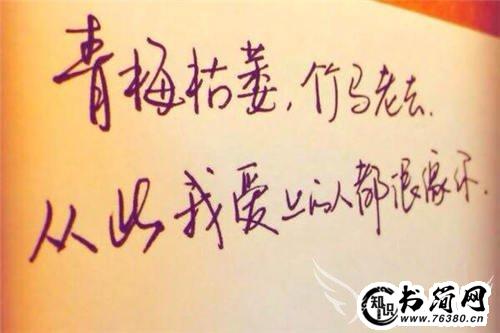 青梅枯萎,竹马老去.
从此我爱上的人都很像你.
知识
书简网
www.76380.cn